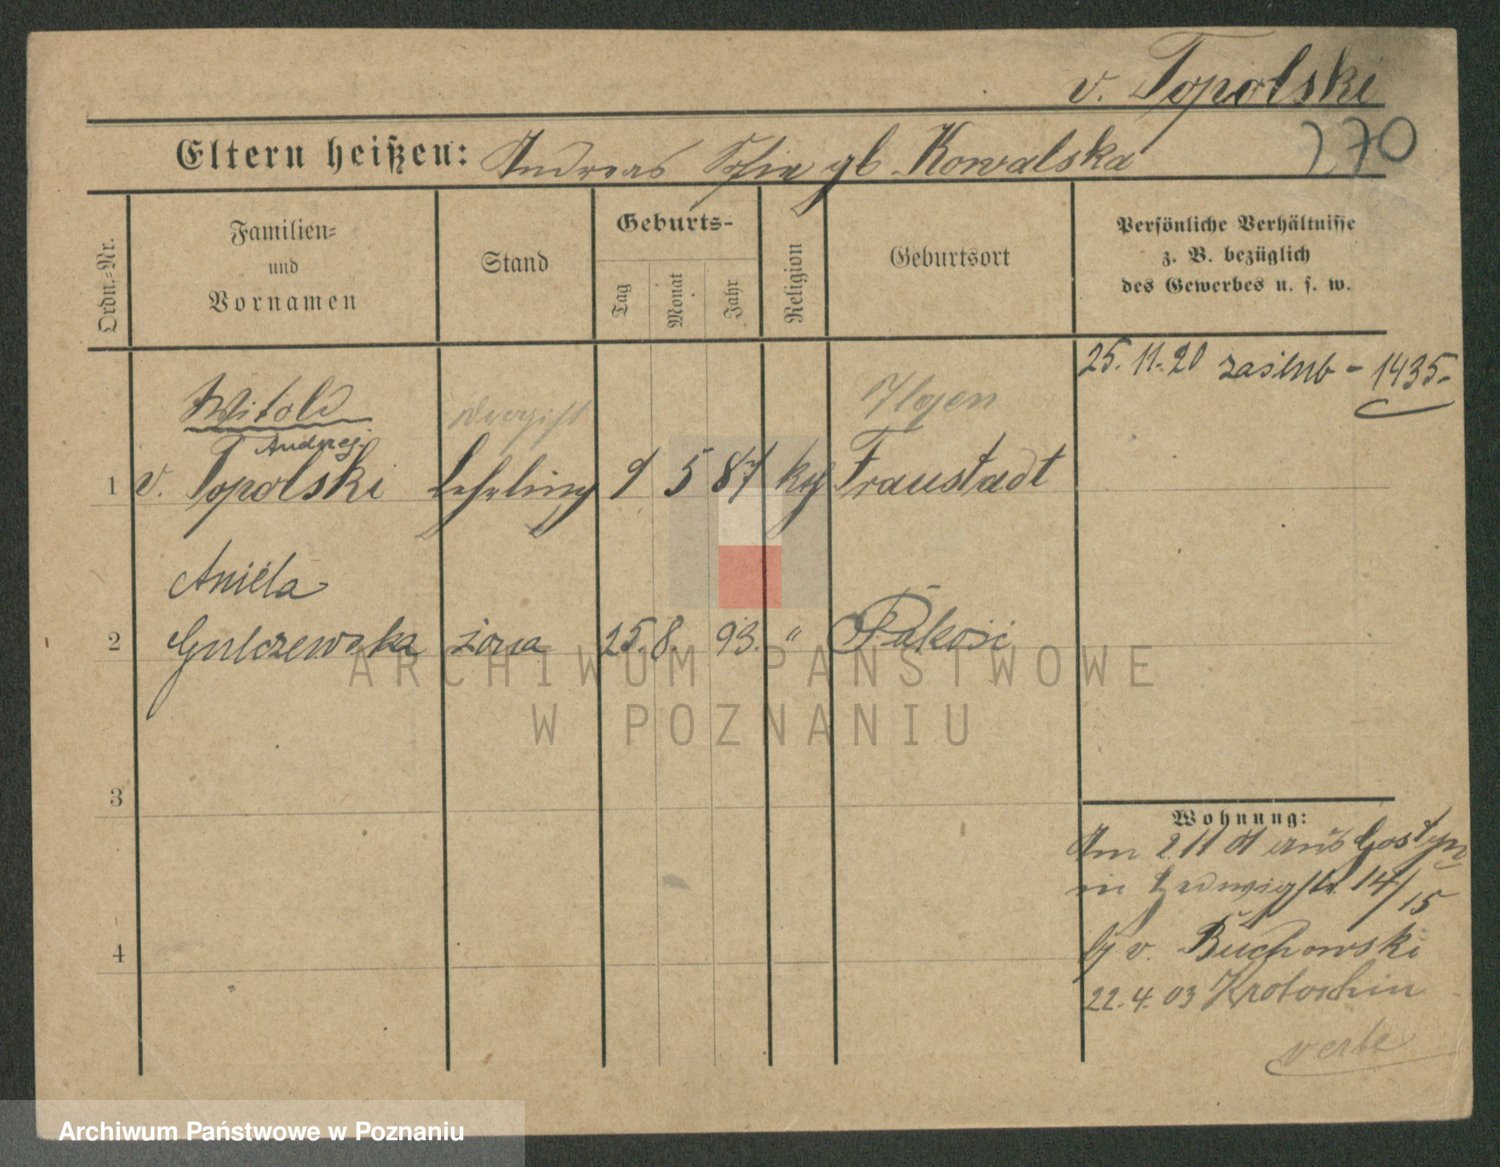 v. Topolski
270
Eltern heißen: Andreas Sofia gb Kowalska
Ordn.-Nr.
Familien- und Vornamen
Stand
Geburts-
Tag
Monat
Jahr
Religion
Geburtsort
Persönliche Verhältnisse
z. B. bezüglich
des Gewerbes u. s. w.
25. 11. 20 zaślub - 1435.
Witold
Andrzej
Ilgen
1 v. Topolski Lehrling 9 5 87 kg Fraustadt
Aniela
2 Gulczewska żona 25. 8. 93. " Pakość
3
4
Wohnung:
Am 2 11 01 aus Gostyn
in Hedwigstr. 14/15
bj v. Buchowski
22. 4. 03 Krotoschin
verte
ARCHIWUM PAŃSTWOWE
W POZNANIU
Archiwum Państwowe w Poznaniu